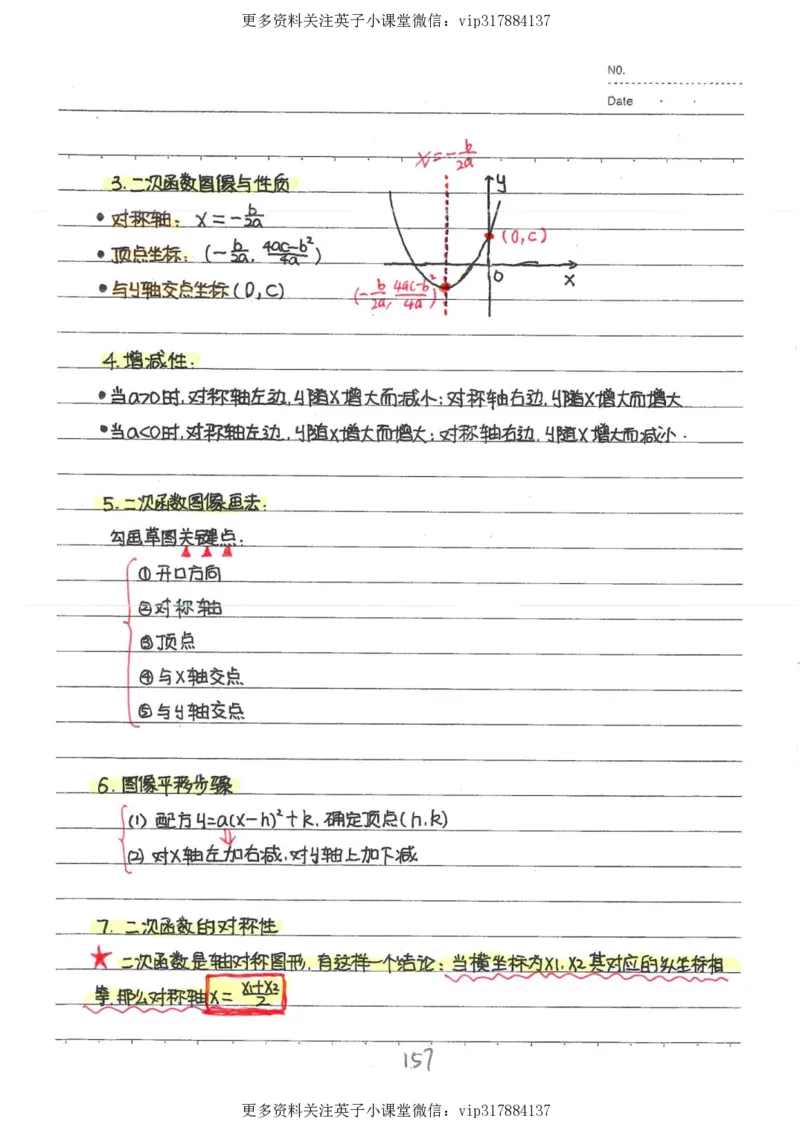 更多资料关注英子小课堂微信：vip317884137
NO.
Date
x=-b/2a
3.二次函数图像与性质
y
•对称轴：x=-b/2a
(0,c)
•顶点坐标：(-b/2a, 4ac-b²/4a)
0
x
•与y轴交点坐标(0,c)
(-b/2a, 4ac-b²/4a)
4.增减性：
•当a>0时,对称轴左边,y随x增大而减小;对称轴右边,y随x增大而增大
•当a<0时,对称轴左边,y随x增大而增大;对称轴右边,y随x增大而减小.
5.二次函数图像画法：
勾画草图关键点：
①开口方向
②对称轴
③顶点
④与x轴交点
⑤与y轴交点
6.图像平移步骤
(1) 配方y=a(x-h)²+k,确定顶点(h,k)
(2) 对x轴左加右减,对y轴上加下减
7. 二次函数的对称性
★ 二次函数是轴对称图形,有这样一个结论：当横坐标为x1,x2其对应的纵坐标相
等,那么对称轴x=x1+x2/2
157
更多资料关注英子小课堂微信：vip317884137